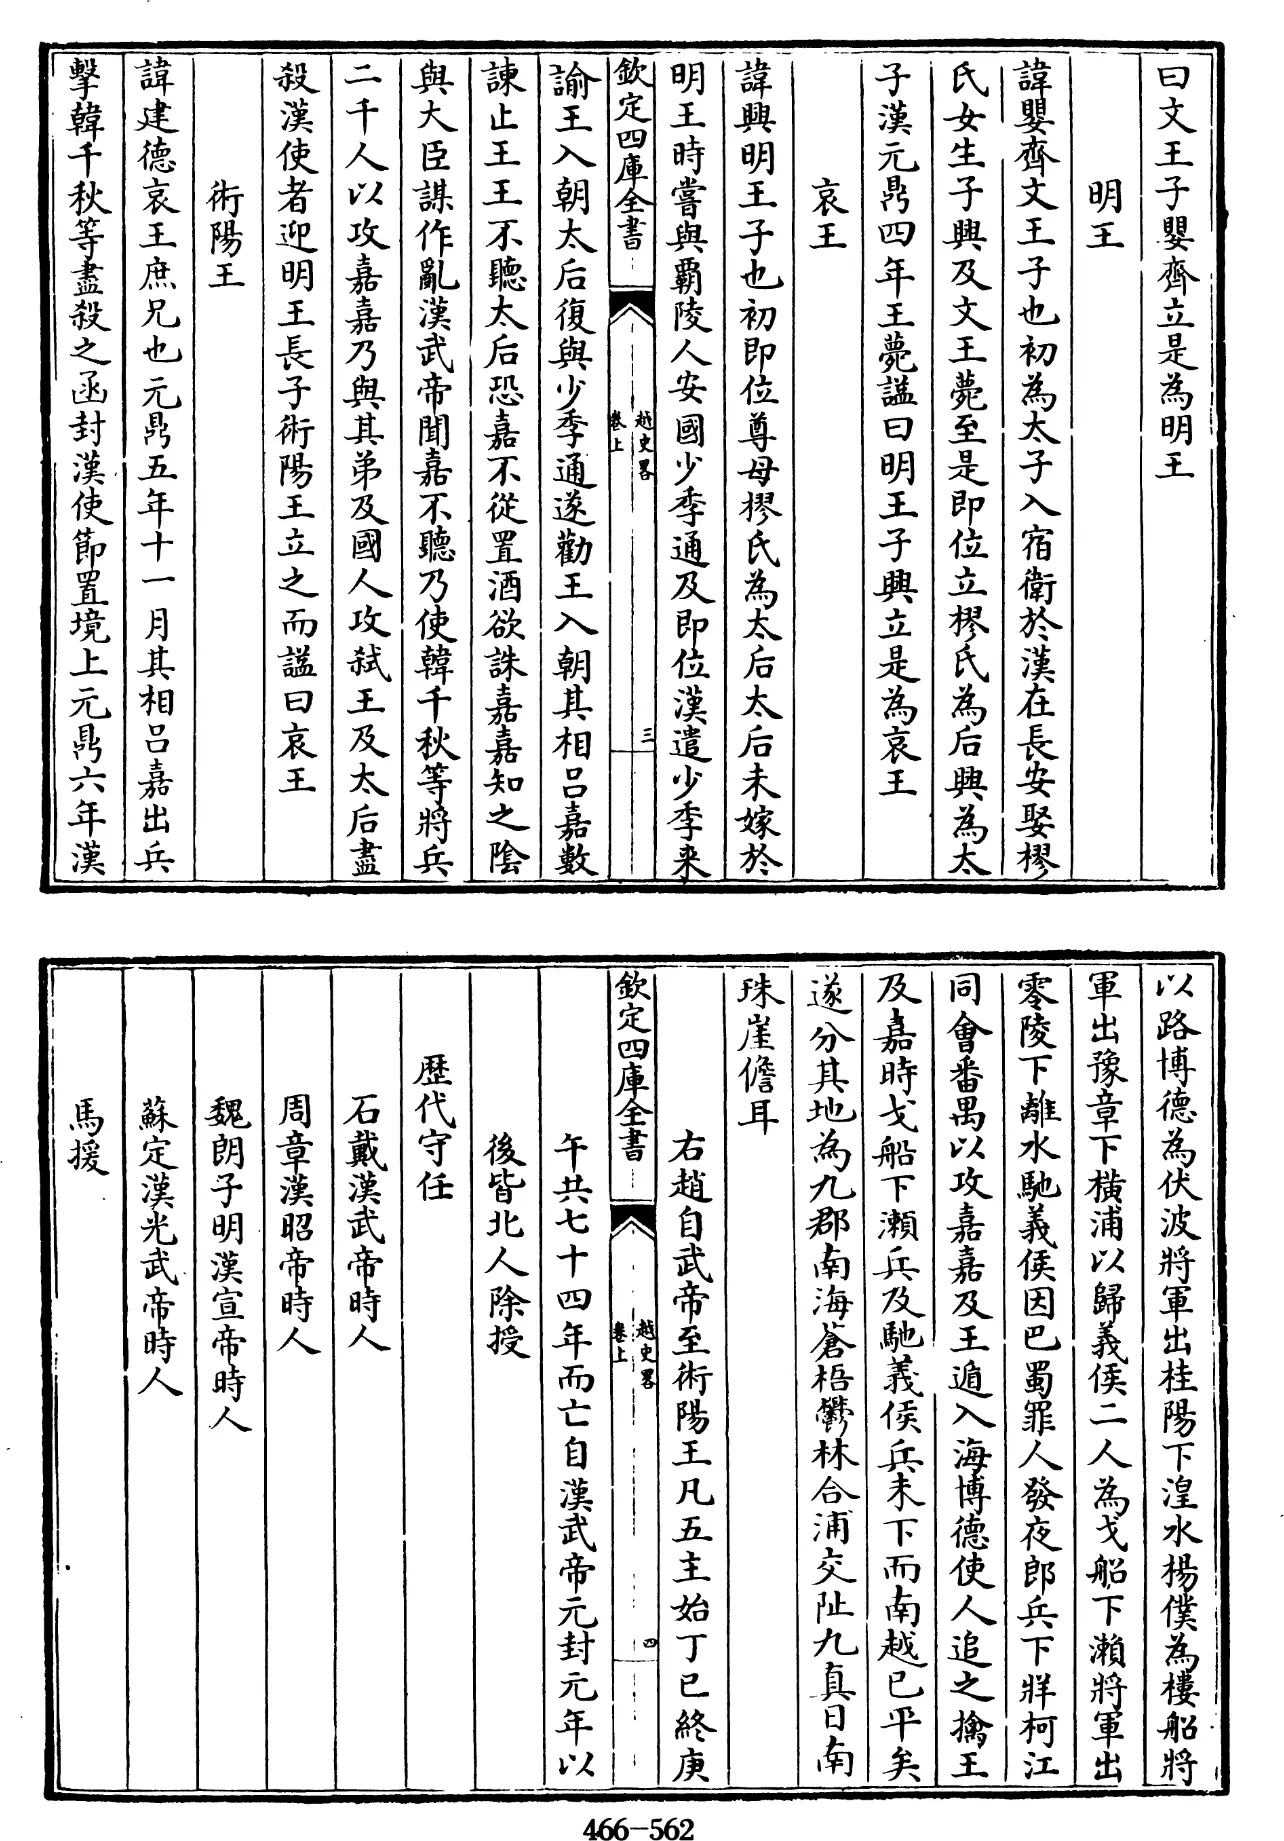 曰文王子嬰齊立是為明王
明王
諱嬰齊文王子也初為太子入宿衛於漢在長安娶樛
氏女生子興及文王薨至是即位立樛氏為后興為太
子漢元鼎四年王薨諡曰明王子興立是為哀王
哀王
諱興明王子也初即位尊母樛氏為太后太后未嫁於
明王時嘗與覇陵人安國少季通及即位漢遣少季来
欽定四庫全書
越史畧
卷上
三
諭王入朝太后復與少季通遂勸王入朝其相呂嘉數
諫止王王不聽太后恐嘉不從置酒欲誅嘉嘉知之陰
與大臣謀作亂漢武帝聞嘉不聽乃使韓千秋等將兵
二千人以攻嘉嘉乃與其弟及國人攻弑王及太后盡
殺漢使者迎明王長子術陽王立之而諡曰哀王
術陽王
諱建德哀王庶兄也元鼎五年十一月其相呂嘉出兵
擊韓千秋等盡殺之函封漢使節置境上元鼎六年漢
以路博德為伏波將軍出桂陽下湟水楊僕為樓船將
軍出豫章下横浦以歸義侯二人為戈船下瀨將軍出
零陵下離水馳義侯因巴蜀罪人發夜郎兵下牂柯江
同會番禺以攻嘉嘉及王遁入海博德使人追之擒王
及嘉時戈船下瀨兵及馳義侯兵未下而南越已平矣
遂分其地為九郡南海蒼梧鬱林合浦交阯九真日南
珠崖儋耳
右趙自武帝至術陽王凡五主始丁巳終庚
欽定四庫全書
越史畧
卷上
四
午共七十四年而亡自漢武帝元封元年以
後皆北人除授
歴代守任
石戴漢武帝時人
周章漢昭帝時人
魏朗子明漢宣帝時人
蘇定漢光武帝時人
馬援
466-562